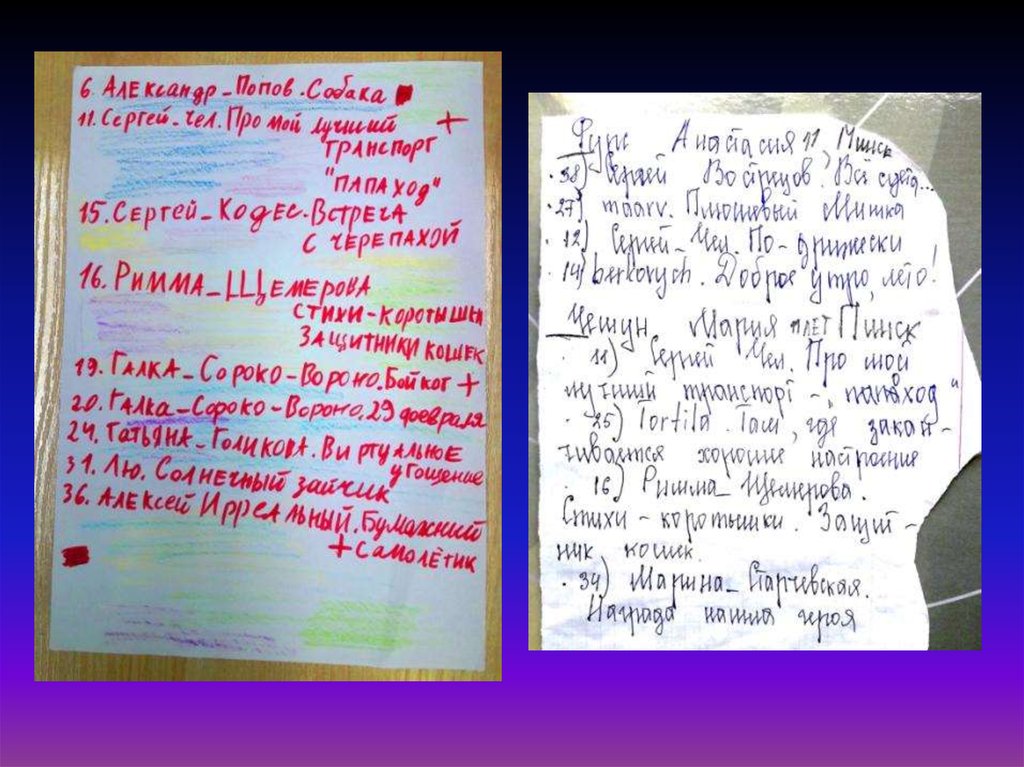 6. Александр_Попов. Собака
11. Сергей_Чел. Про мой лучший +
транспорт
"папаход"
15. Сергей_Кодес. Встреча
с черепахой
16. Римма_Щемерова
стихи-коротышки
защитники кошек
19. Галка_Сороко-Вороно. Бойкот +
20. Галка_Сороко-Вороно. 29 февраля
24. Татьяна_Голикова. Виртуальное
угощение
31. Лю. Солнечный зайчик
36. Алексей Ирреальный. Бумажний
+ самолётик
Фукс Анастасия 11, Минск
38) Сергей Вострецов. Всё суета...
27) maarv. Плюшевый Мишка
12) Сергей_Чел. По-дружески
14) berkovych. Доброе утро, лето!
Мария 11 лет Пинск
11) Сергей Чел. Про мой
лучший транспорт - "папаход"
25) Tortila. Там, где закан-
чивается хорошее настроение
16) Римма_Щемерова.
Стихи-коротышки. Защит-
ник кошек.
34) Марина_Старчевская.
Награда нашла героя